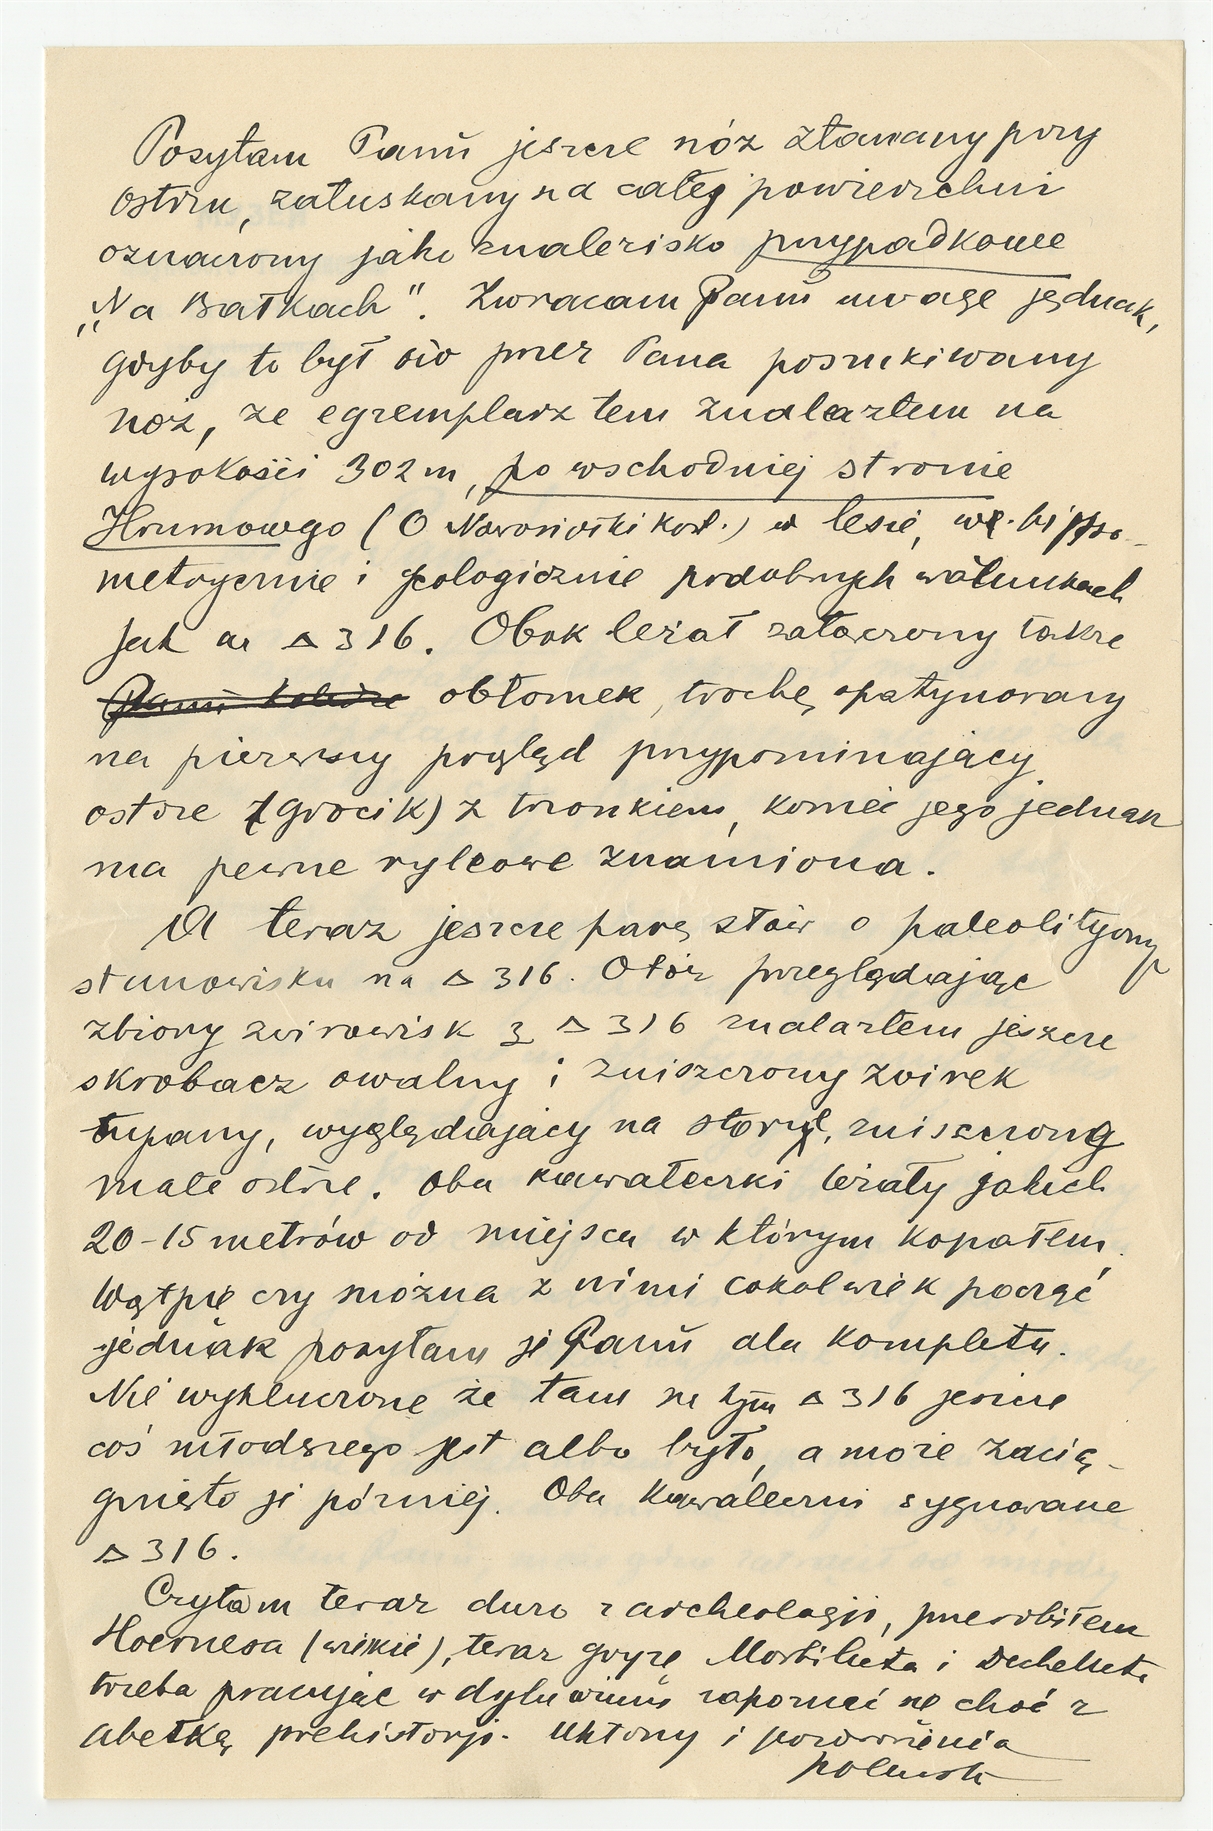 Posyłam Panu jeszcze nóż złamany przy
ostrzu, załuskany na całej powierzchni
oznaczony jako znalezisko przypadkowe
„Na Batkach". Zwracam Panu uwagę jednak,
gdyby to był oto przez Pana poszukiwany
nóż, że egzemplarz ten znalazłem na
wysokości 302 m, po wschodniej stronie
Hrumowego (O Nowosiołki Kost.) w lesie, we. hippso-
metrycznie i geologicznie podobnych warunkach
jak na △ 316. Obok leżał załączony także
obłomek, trochę opatynowany
na pierwszy pogląd przypominający
ostrze (grocik) z trzonkiem, koniec jego jednak
ma pewne rylcowe znamiona.
A teraz jeszcze parę słów o paleolitycznym
stanowisku na △ 316. Otóż przeglądając
zbiory zwirowisk z △ 316 znalazłem jeszcze
skrobacz owalny i zniszczony żwirek
łupany, wyglądający na stary, zniszczony
małe ostrze. Oba kawałeczki leżały jakich
20-15 metrów od miejsca w którym kopałem.
Wątpię czy można z nimi cokolwiek począć
jednak posyłam je Panu dla kompletu.
Nie wykluczone że tam na tym △ 316 jeszcze
coś młodszego jest albo było, a może zacią-
gnięto je później. Oba kawałeczki sygnowane
△ 316.
Czytam teraz dużo z archeologji, przerobiłem
Hoernesa (wielkie), teraz gryzę Mortilleta i Decheletta
trzeba pracując w dyluwium zapoznać się choć z
abetką prehistorji. Ukłony i pozdrowienia